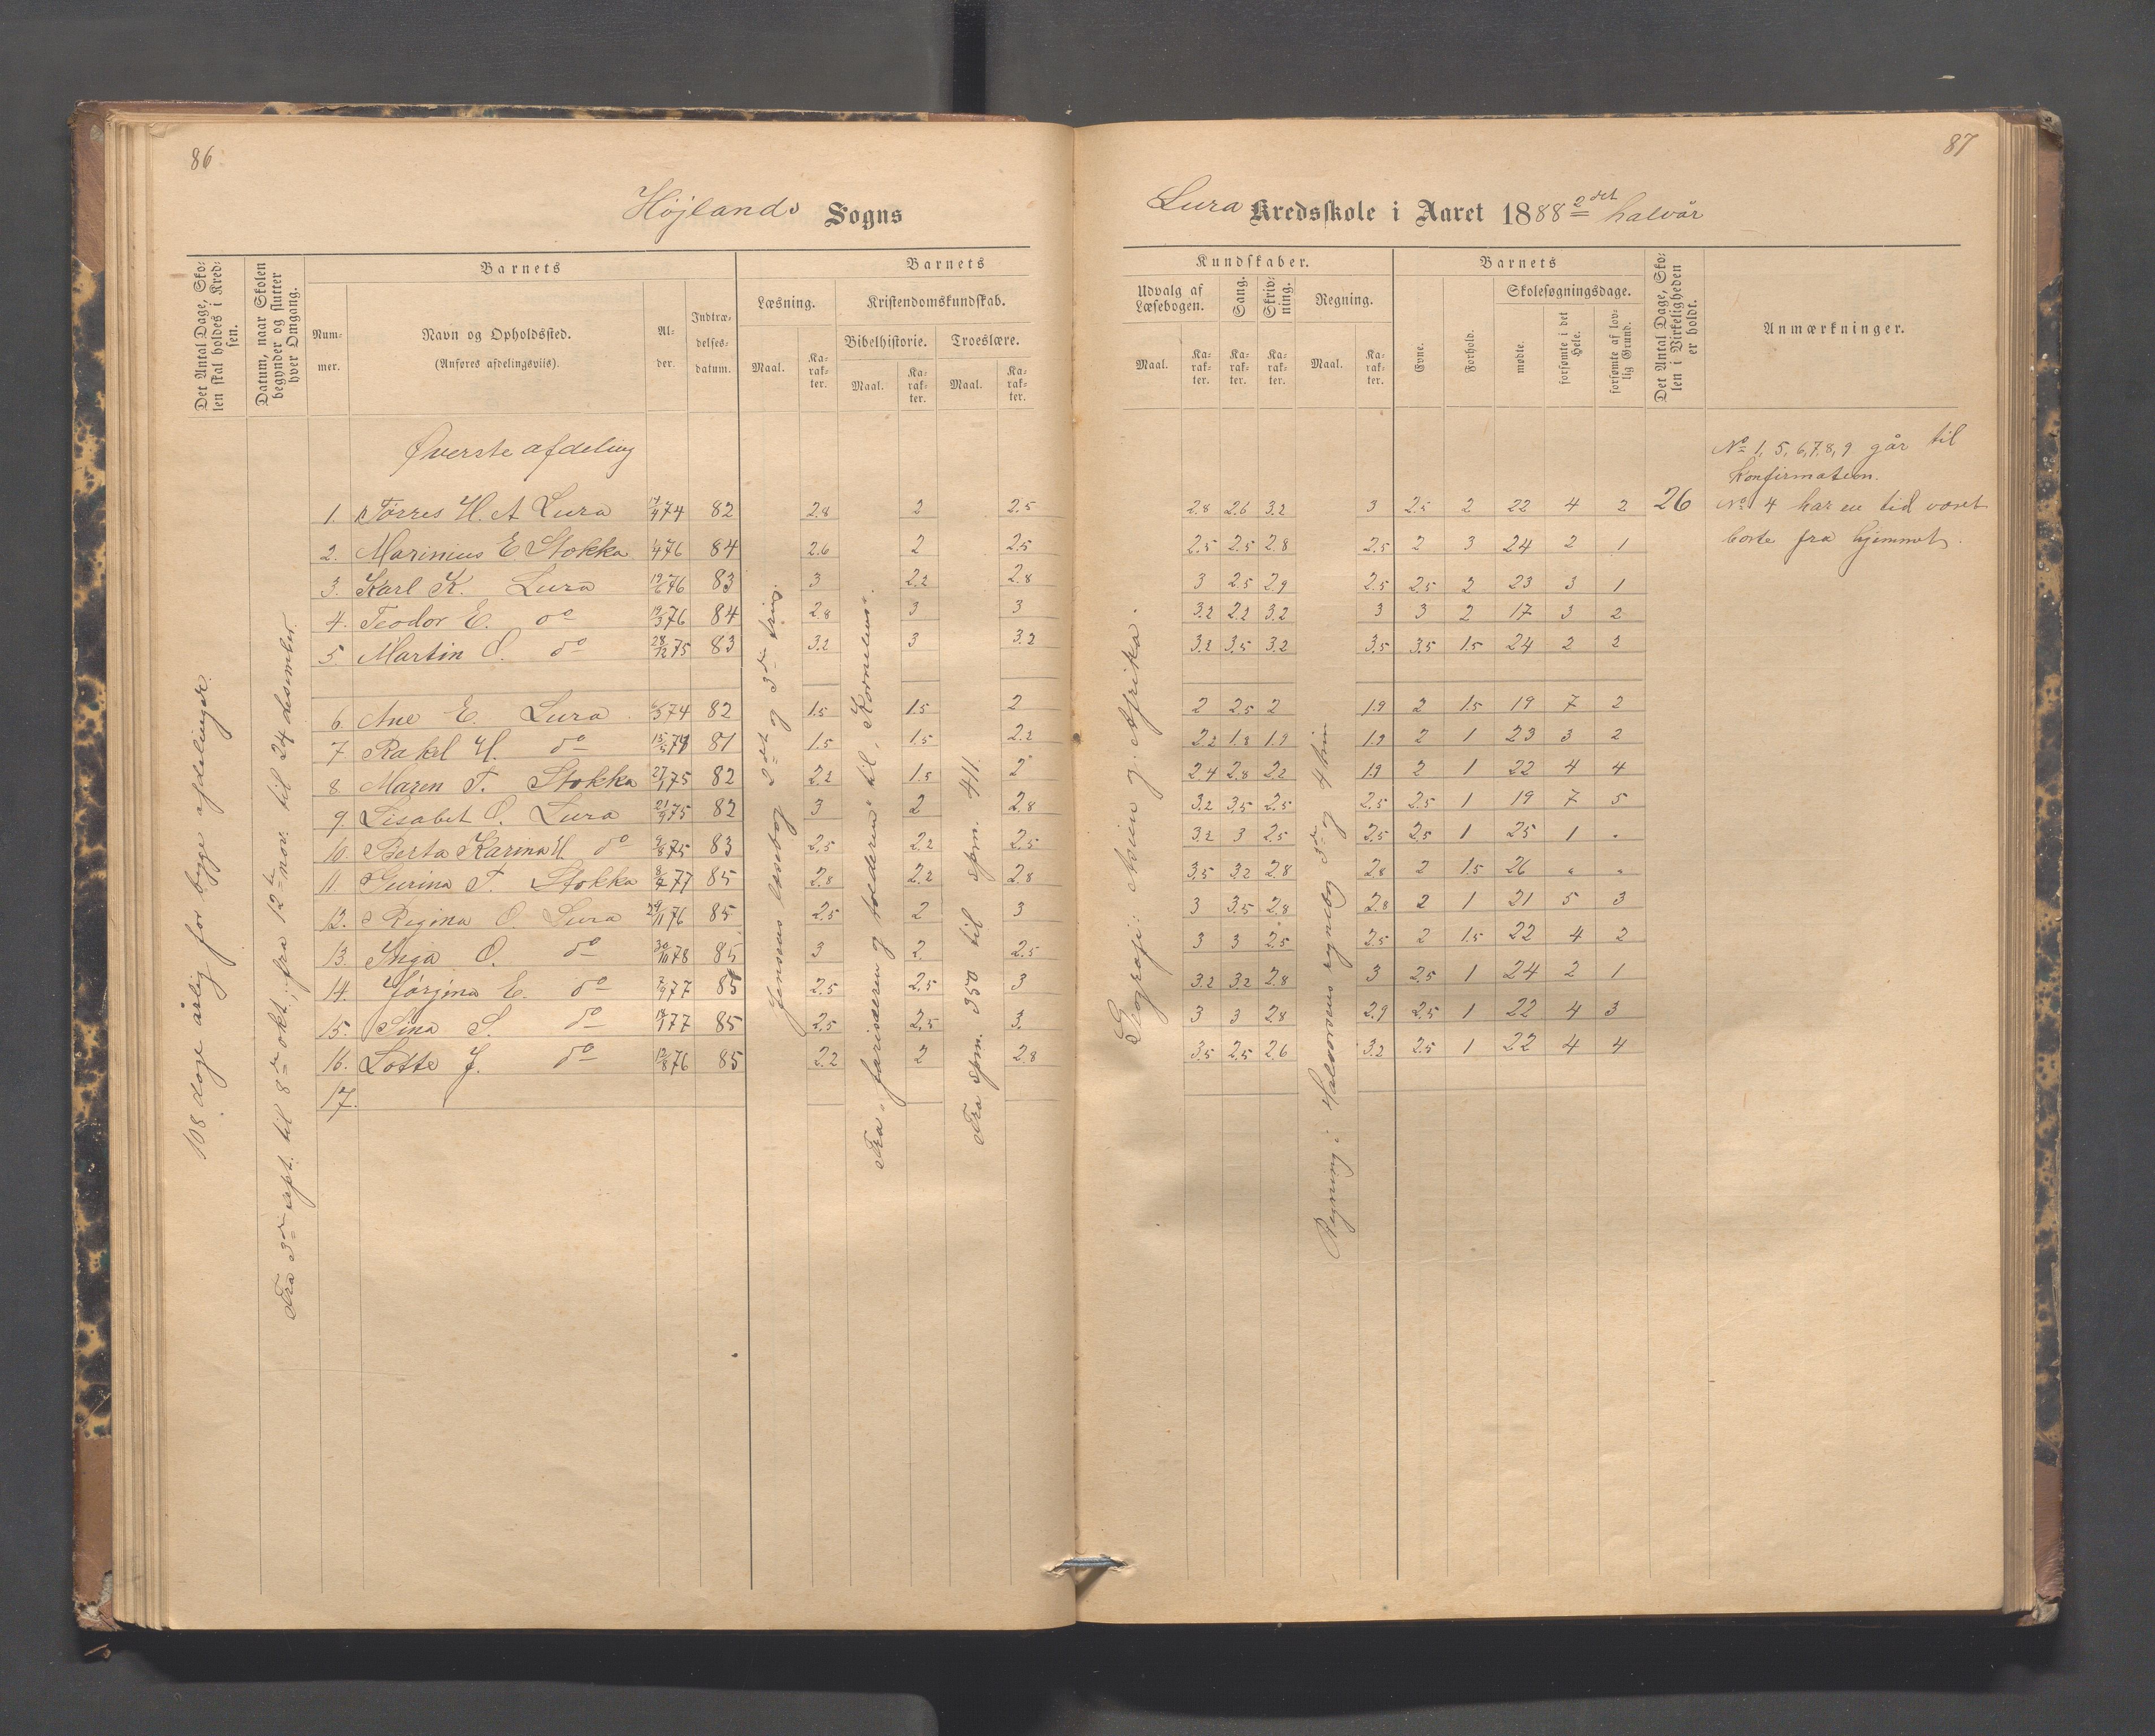 86
Højlands Sogns
Det Antal Dage, Skolen skal holdes i Kredsen.
Datum, naar Skolen begynder og slutter hver Omgang.
Barnets
Nummer.
Navn og Opholdssted.
(Anføres afdelingsviis).
Alder.
Indtrædelsesdatum.
Barnets
Læsning.
Maal.
Karakter.
Kristendomskundskab.
Bibelhistorie.
Maal.
Karakter.
Troeslære.
Maal.
Karakter.
108 dage årlig for begge afdelinger.
Fra 3die sept. til 8de okt., fra 12te nov. til 24 desember.
Jensens læsebog 2det og 3die trin.
Fra „farisæeren og tolderen" til „Kornelius".
Fra spm. 350 til spm. 411.
Øverste afdeling
1. Tørres H. A Lura 74 82 2.8 2 2.5
2. Marinius E Stokka 76 84 2.6 2 2.5
3. Karl K. Lura 76 83 3 2.2 2.8
4. Teodor E. do 76 84 2.8 3 3
5. Martin O. do 28/12 75 83 3.2 3 3.2
6. Ane E. Lura 74 82 1.5 1.5 2
7 Rakel H. do 81 1.5 1.5 2.2
8 Maren T. Stokka 75 82 2.2 1.5 2
9. Lisabet O. Lura 21/9 75 82 3 2 2.8
10. Berta Karina H do 9/8 75 83 2.5 2.2 2.5
11. Gurina T. Stokka 77 85 2.8 2.2 2.8
12. Regina O. Lura 29/11 76 85 2.5 2 3
13. Inga O. do 30/10 78 85 3 2. 2.5
14. Jørgine E. do 77 85 2.5 2.5 3
15. Sina S. do 77 85 2.5 2.5 3.
16. Lotte J. do 12/8 76 85 2.2 2 2.8
17.
87
Lura Kredsskole i Aaret 1888 2det halvår
Kundskaber.
Udvalg af Læsebogen.
Maal.
Karakter.
Sang.
Karakter.
Skrivning.
Karakter.
Regning.
Maal.
Karakter.
Barnets
Evne.
Forhold.
Skolesøgningsdage.
mødte.
forsømte i det Hele.
forsømte af lovlig Grund.
Det Antal Dage, Skolen i Virkeligheden er holdt.
Anmærkninger.
Geografi: Asien og Afrika.
Regning: Halvorsens regnebog 3die og 4 trin
No 1, 5, 6, 7, 8, 9 går til
Konfirmation.
No 4 har en tid været
borte fra hjemmet.
2.8 2.6 3.2 3 2.5 2 22 4 2 26
2.5 2.5 2.8 2.5 2 3 24 2 1
3 2.5 2.9 2.5 2.5 2 23 3 1
3.2 2.2 3.2 3 3 2 17 3 2
3.2 3.5 3.2 3.5 3.5 1.5 24 2 2
2 2.5 2 1.9 2 1.5 19 7 2
2.2 1.8 1.9 1.9 2 1 23 3 2
2.4 2.8 2.2 1.9 2 1 22 4 4
3.2 3.5 2.5 2.5 2.5 1 19 7 5
3.2 3 2.5 2.5 2.5 1 25 1 .
3.5 3.2 2.8 2.8 2 1.5 26 " "
3 3.5 2.8 2.8 2 1 21 5 3
3 3 2.5 2.5 2 1.5 22 4 2
3.2 3.2 2.8 3 2.5 1 24 2 1
3 3 2.8 2.9 2.5 1 22 4 3
3.5 2.5 2.6 3.2 2.5 1 22 4 4